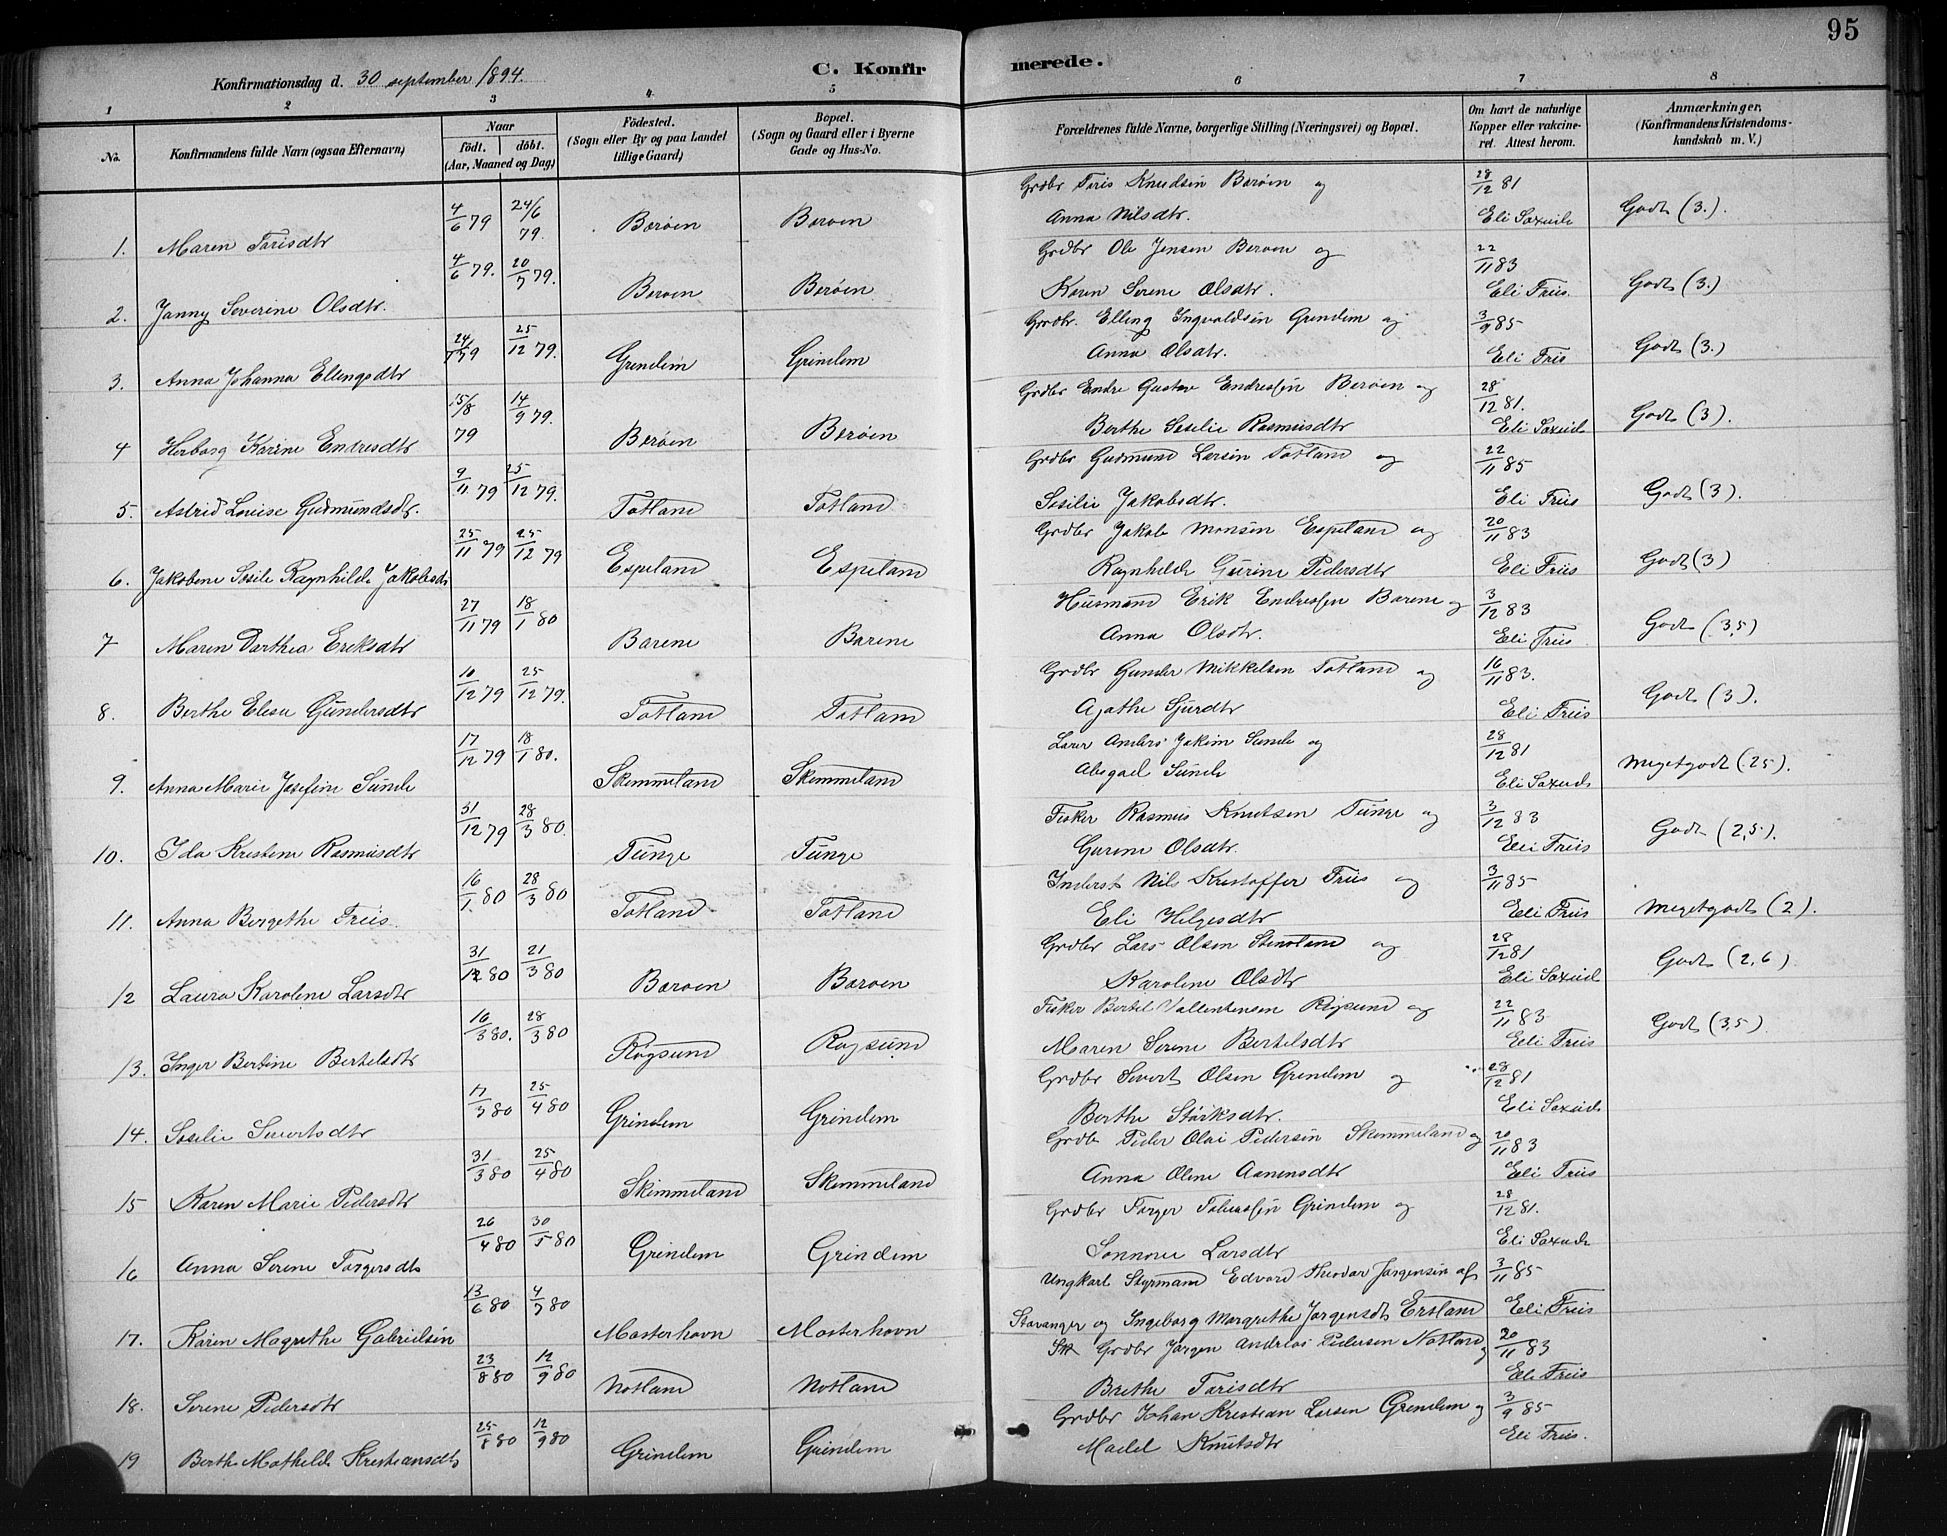 95
Konfirmationsdag d. 30 september 1894.
C. Konfirmerede.
1 2 3 4 5 6 7 8
No.
Konfirmandens fulde Navn (ogsaa Efternavn)
Naar
födt. döbt.
(Aar, Maaned og Dag)
Födested.
(Sogn eller By og paa Landet
tillige Gaard)
Bopæl.
(Sogn og Gaard eller i Byerne
Gade og Hus-No.
Forældrenes fulde Navne, borgerlige Stilling (Næringsvei) og Bopæl.
Om havt de naturlige
Kopper eller vakcine-
ret. Attest herom.
Anmærkninger,
(Konfirmandens Kristendoms-
kundskab m. V.)
1. Maren Tarisdtr 4/6 79 24/6 79. Barøen Barøen Grdbr Taris Knudsen Barøen og Anna Nilsdtr. 28/12 81 Eli Saxeide Godt (3.)
2. Janny Severine Olsdtr. 4/6 79. 20/7 79. Barøen Barøen Grdbr Ole Jensen Barøen og Karen Serene Olsdtr. 22/11 83 Eli Friis. Godt (3)
3. Anna Johanna Ellingsdtr 25/12 79. Grindem Grindem Grdbr. Elling Ingvaldsen Grindem og Anna Olsdtr. 3/9 85 Eli Friis Godt (3.)
4 Herborg Karine Endresdtr 15/8 79 14/9 79. Barøen Barøen Grdbr Endre Gustav Endressen Barøen og Berthe Sesilie Rasmusdtr 28/12 81. Eli Saxeide Godt (3).
5. Astrid Lovise Gudmundsdtr. 9/11 79 25/12 79. Totland Totland Grdbr Gudmund Larsen Totland og Sesilie Jakobsdtr. 22/11 85 Eli Friis Godt (3).
6. Jakobine Sesile Ragnhilde Jakobsdtr 25/11 79 25/12 79 Espeland Espeland Grdbr Jakob Monsen Espeland og Ragnhilde Gurine Pedersdtr 20/11 83 Eli Friis Godt (3)
7 Maren Darthea Eriksdtr 27/11 79 18/1 80 Barene Barene Husmand Erik Endressen Barene og Anna Olsdtr. 3/12 83 Eli Friis Godt (3,5)
8. Berthe Elesa Gundersdtr 10/12 79 25/12 79. Totland Totland Grdbr Gunder Mikkelsen Totland og Agathe Sjurdtr 16/11 83. Eli Friis Godt (3).
9. Anna Marie Josefine Sunde 17/12 79 18/1 80. Skimmeland Skimmeland Lærer Anders Jakim Sunde og Abegael Sunde 28/12 81 Eli Saxeide Megetgodt (2.5).
10. Ida Kristene Rasmusdtr 31/12 79 28/3 80. Tunge Tunge Fisker Rasmus Knutsen Tunge og Gurene Olsdtr. 3/12 83 Eli Friis Godt (2,5).
11. Anna Bergethe Friis. 16/1. 80 28/3 80 Totland Totland Inderst Nils Kristoffer Friis og Eli Helgesdtr 3/11 85 Eli Friis Megetgodt (2).
12 Laura Karolene Larsdtr 31/ 80 21/3 80 Barøen Barøen Grdbr Lars Olsen Stensland og Karolene Olsdtr 28/12 81 Eli Saxeid Godt (2,6)
13. Inger Bertine Bertelsdtr 16/3 80. 28/3 80 Rogsund Rogsund Fisker Bertel Vallentensen Rogsund og Maren Serene Bertelsdtr 22/11 83 Eli Friis Godt (3,5)
14. Sesilie Sivertsdtr 17/3 80 25/4 80 Grindem Grindem Grdbr Sivert Olsen Grendem og Berthe Størksdtr. 28/12 81 Eli Saxeide
15 Karen Marie Pedersdtr 31/3 80 25/4 80 Skimmeland Skimmeland Grdbr Peder Olai Pedersen Skimmeland og Anna Olene Aanensdtr 20/11 83 Eli Friis
16 Anna Serene Torgersdtr 26/4 80 30/5 80 Grindem Grindem Grdbr Torger Tobiassen Grindem og Sonnove Larsdtr 28/12 81. Eli Saxeide
17. Karen Magrethe Gabrielsen 13/6 80 4/7 80 Mosterhavn Mosterhavn Ungkarl Styrmand Edvard Theodor Jørgensen af Stavanger og Ingeborg Margrethe Jørgensdtr Ersland 3/11 85 Eli Friis
18. Serene Pedersdtr 23/8 80 12/9 80 Notland Notland Grdbr Jørgen Andreas Pedersen Notland og Brethe Tarisdtr 20/11 83 Eli Friis
19 Berthe Mathilde Kristiansdtr 25/8 80 12/9 80 Grindem Grindem Grdbr Johan Kristian Larsen Grendem og Madel Knutsdtr 3/9 85 Eli Friis.